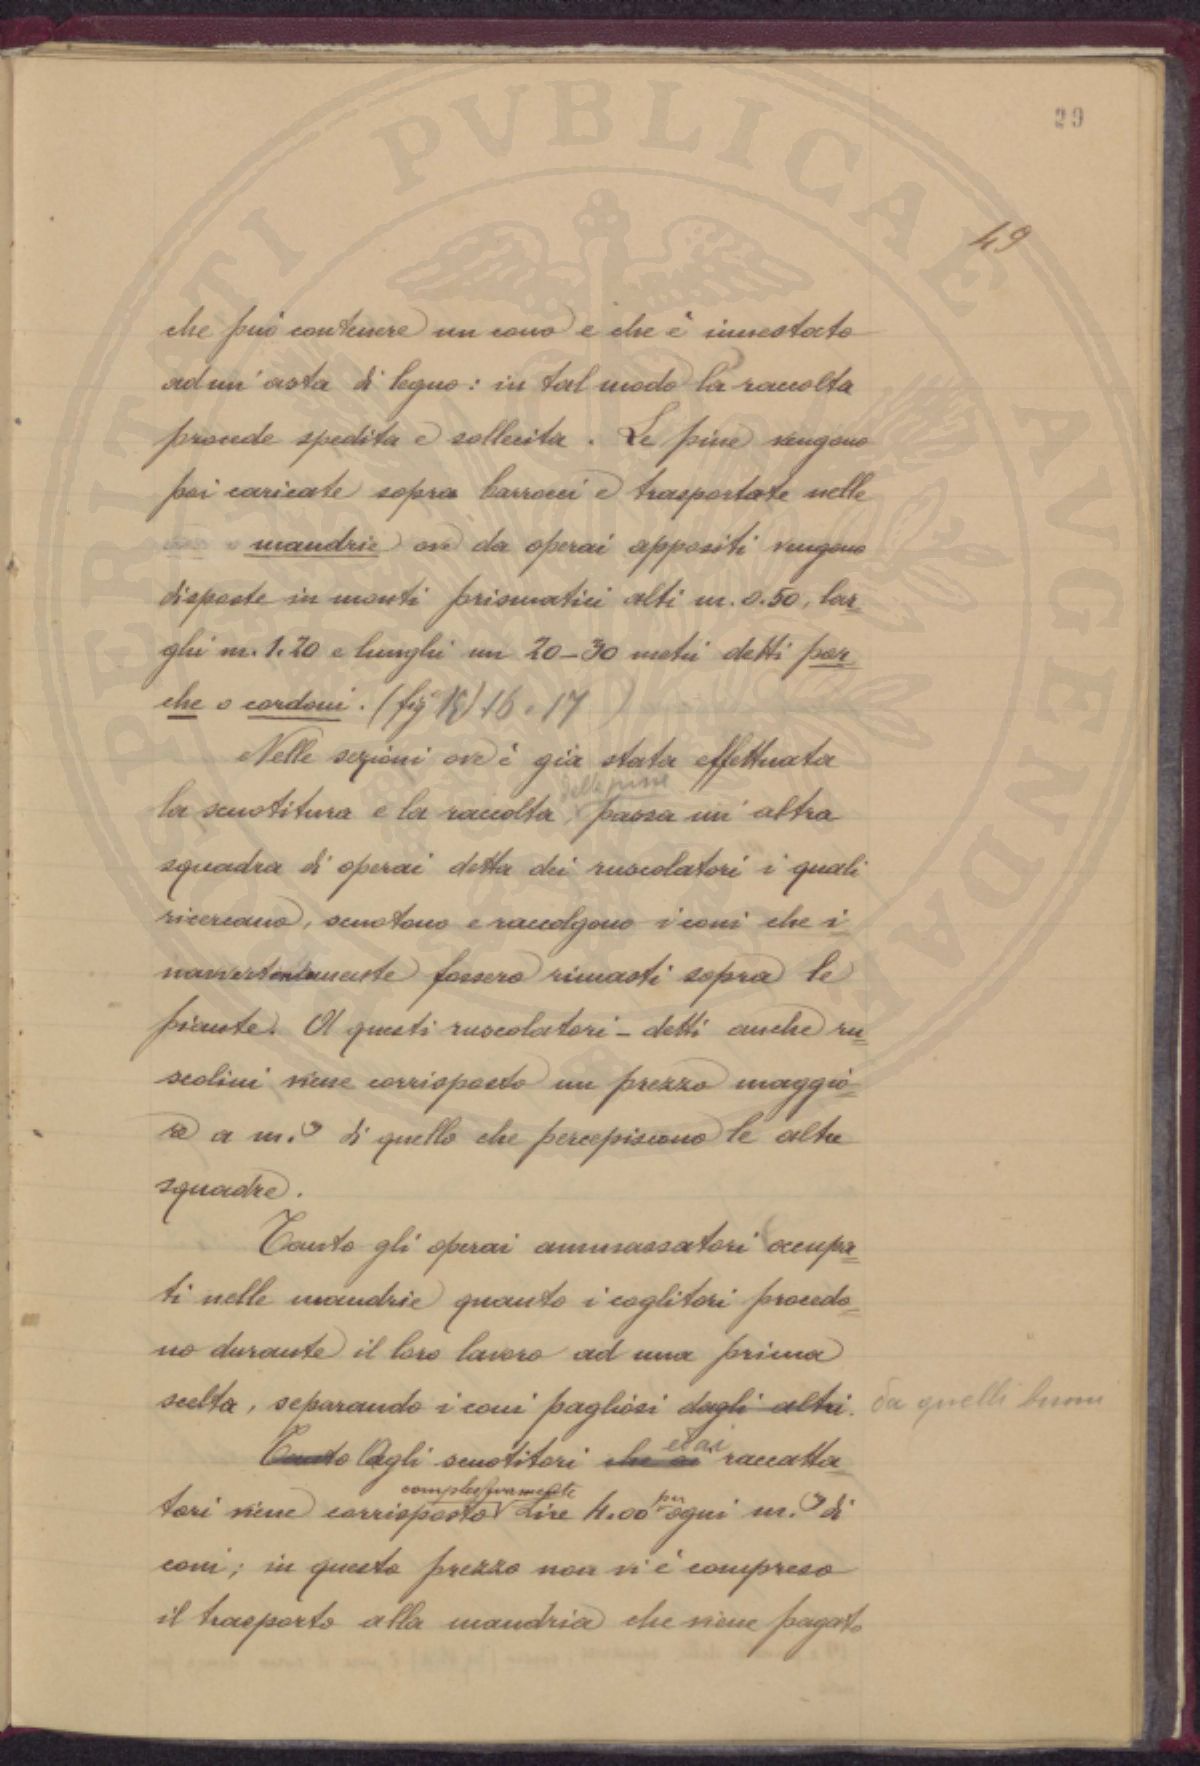 29
49
che può contenere un cono e che è innestato
ad un' asta di legno: in tal modo la raccolta
procede spedita e sollecita. Le pine vengono
poi caricate sopra barrocci e trasportate nelle
mandrie ove da operai appositi vengono
disposte in monti prismatici alti m. 0.50, lar
ghi m. 1.20 e lunghi un 20-30 metri detti por
che o cordoni. (fig 16 e 17)
Nelle sezioni ove è già stata effettuata
delle pine
la scuotitura e la raccolta, passa un' altra
squadra di operai detta dei ruscolatori i quali
ricercano, scuotono e raccolgono i coni che i
navvertentemente fossero rimasti sopra le
piante. A questi ruscolatori - detti anche ru
scolini viene corrisposto un prezzo maggio
re a m.³ di quello che percepiscono le altre
squadre.
Tanto gli operai ammassatori occupa
ti nelle mandrie quanto i coglitori procedo
no durante il loro lavoro ad una prima
scelta, separando i coni pagliosi dagli altri. da quelli buoni
et ai
Tanto Agli scuotitori che ai raccatta
complessivamente per
tori viene corrisposto Lire 4.00 ogni m.³ di
coni; in questo prezzo non vi è compreso
il trasporto alla mandria che viene pagato
PERITATI PVBLICAE AVGENDAE